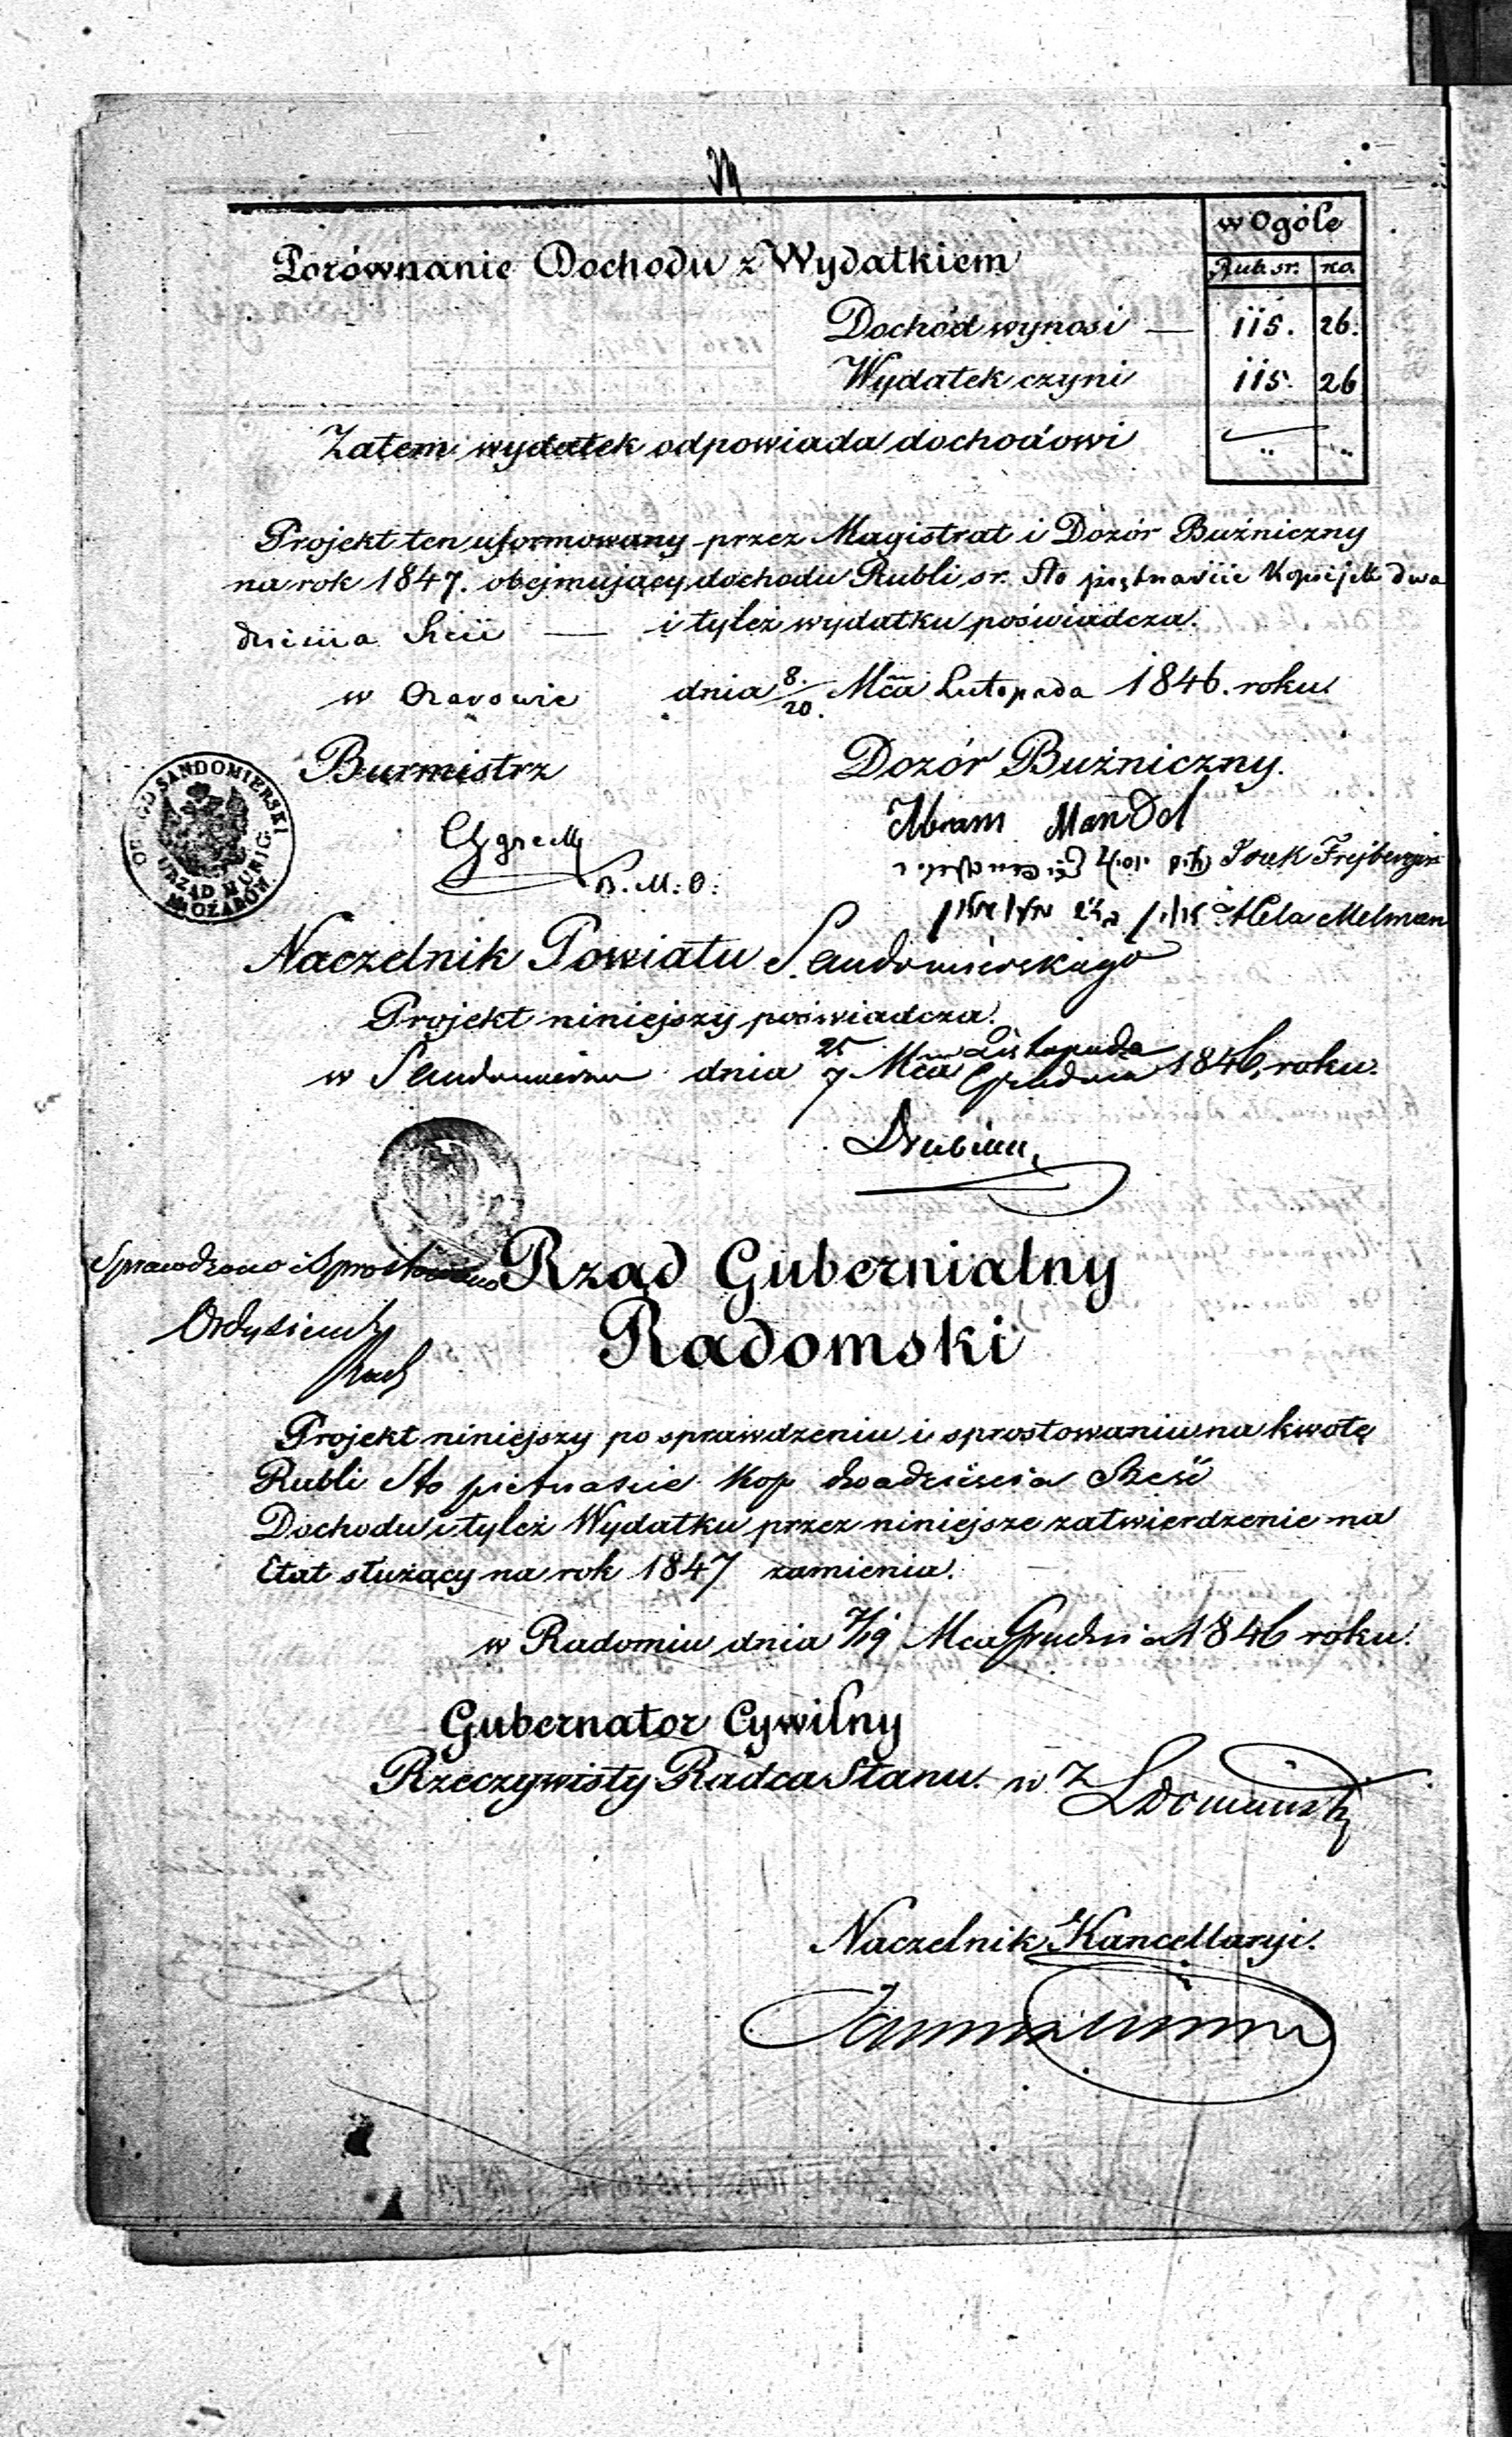 w Ogóle
Porównanie Dochodu z Wydatkiem
Rub. sr. ko.
Dochód wynosi — 115. 26.
Wydatek czyni 115. 26
Zatem wydatek odpowiada dochodowi " "
Projekt ten uformowany przez Magistrat i Dozór Buźniczny
na rok 1847. obejmujący dochodu Rubli sr. Sto piętnaście Kopiejek dwa
dzieścia sześć — i tyleż wydatku poświadcza.
w Ożarowie dnia 8./20. Mca Listopada 1846. roku.
Burmistrz Dozór Buźniczny.
OBWÓD SANDOMIERSKI
URZĄD MUNIC.
M. OŻARÓW.
Abram Mandel
Icek Frejberger
B. M. O.
Hela Melman
Naczelnik Powiatu Sandomierskiego
Projekt niniejszy poświadcza.
w Sandomierzu dnia 25/7 Mca Listopada/Grudnia 1846. roku.
Sprawdzono i Sprostowano
Rząd Gubernialny
Radomski
Projekt niniejszy po sprawdzeniu i sprostowaniu na kwotę
Rubli Sto pietnascie Kop dwadzieścia Sześć
Dochodu i tyleż Wydatku przez niniejsze zatwierdzenie na
Etat służący na rok 1847 zamienia.
w Radomiu dnia 7/19 Mca Grudnia 1846 roku.
Gubernator Cywilny
Rzeczywisty Radca Stanu. w z
Naczelnik Kancellaryi.